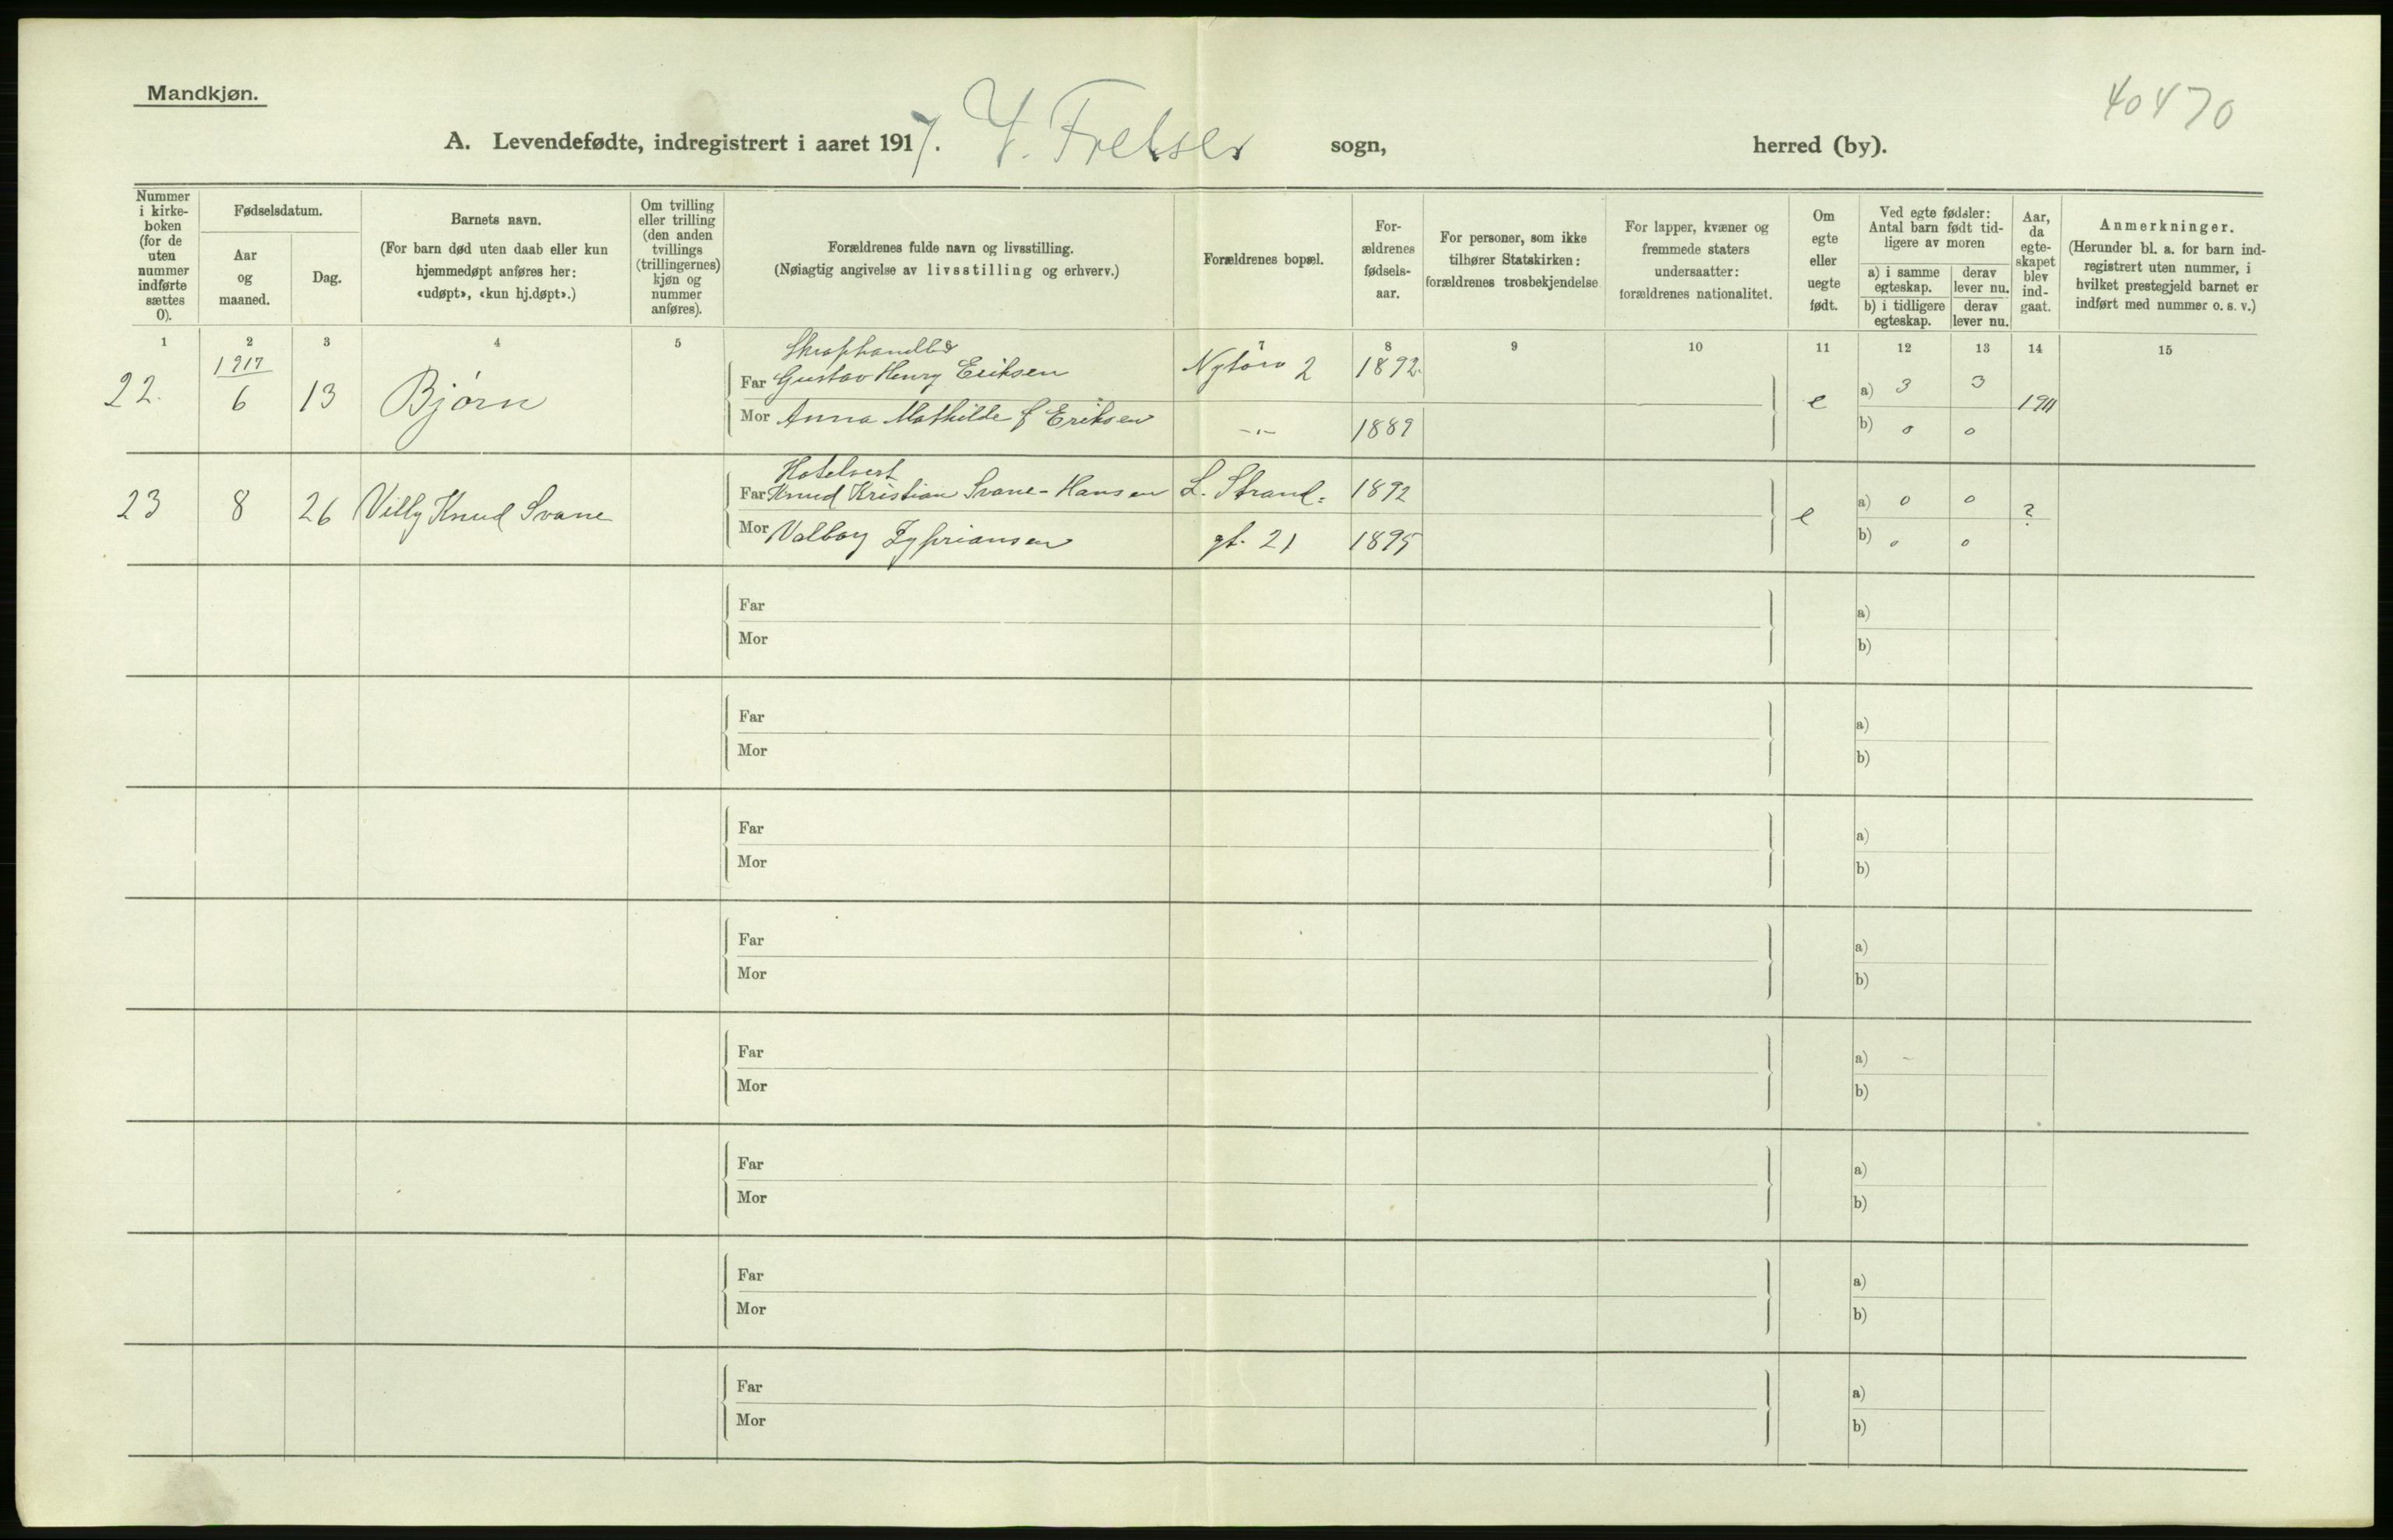 Mandkjøn.
40470
A. Levendefødte, indregistrert i aaret 1917. Y. Frelser sogn, herred (by).
Nummer i kirke-boken (for de uten nummer indførte sættes 0).
Fødselsdatum.
Aar og maaned.
Dag.
Barnets navn.
(For barn død uten daab eller kun hjemmedøpt anføres her: «udøpt», «kun hj.døpt».)
Om tvilling eller trilling (den anden tvillings (trillingernes) kjøn og nummer anføres).
Forældrenes fulde navn og livsstilling.
(Nøiagtig angivelse av livsstilling og erhverv.)
Forældrenes bopæl.
For-ældrenes fødsels-aar.
For personer, som ikke tilhører Statskirken: forældrenes trosbekjendelse
For lapper, kvæner og fremmede staters undersaatter: forældrenes nationalitet.
Om egte eller uegte født.
Ved egte fødsler: Antal barn født tid-ligere av moren
a) i samme egteskap.
derav lever nu.
b) i tidligere egteskap.
derav lever nu.
Aar, da egte-skapet blev ind-gaat.
Anmerkninger.
(Herunder bl. a. for barn ind-registrert uten nummer, i hvilket prestegjeld barnet er indført med nummer o. s. v.)
1 2 3 4 5 7 8 9 10 11 12 13 14 15
1917
22. 6 13 Bjørn
Skraphandler
Far Gustav Henry Eriksen Nytorv 2 1892.
Mor Anna Mathilde f Eriksen -"- 1889
e a) 3 3 1911
b) 0 0
23 8 26 Villy Knud Svane
Hotelvert
Far Knud Kristian Svane-Hansen L. Strand: 1892
Mor Valborg Zypriansen gt. 21 1895
e a) 0 0 ?
b) 0 0
Far a)
Mor b)
Far a)
Mor b)
Far a)
Mor b)
Far a)
Mor b)
Far a) -
Mor b)
Far a)
Mor b)
Far a)
Mor b)
Far a)
Mor b)